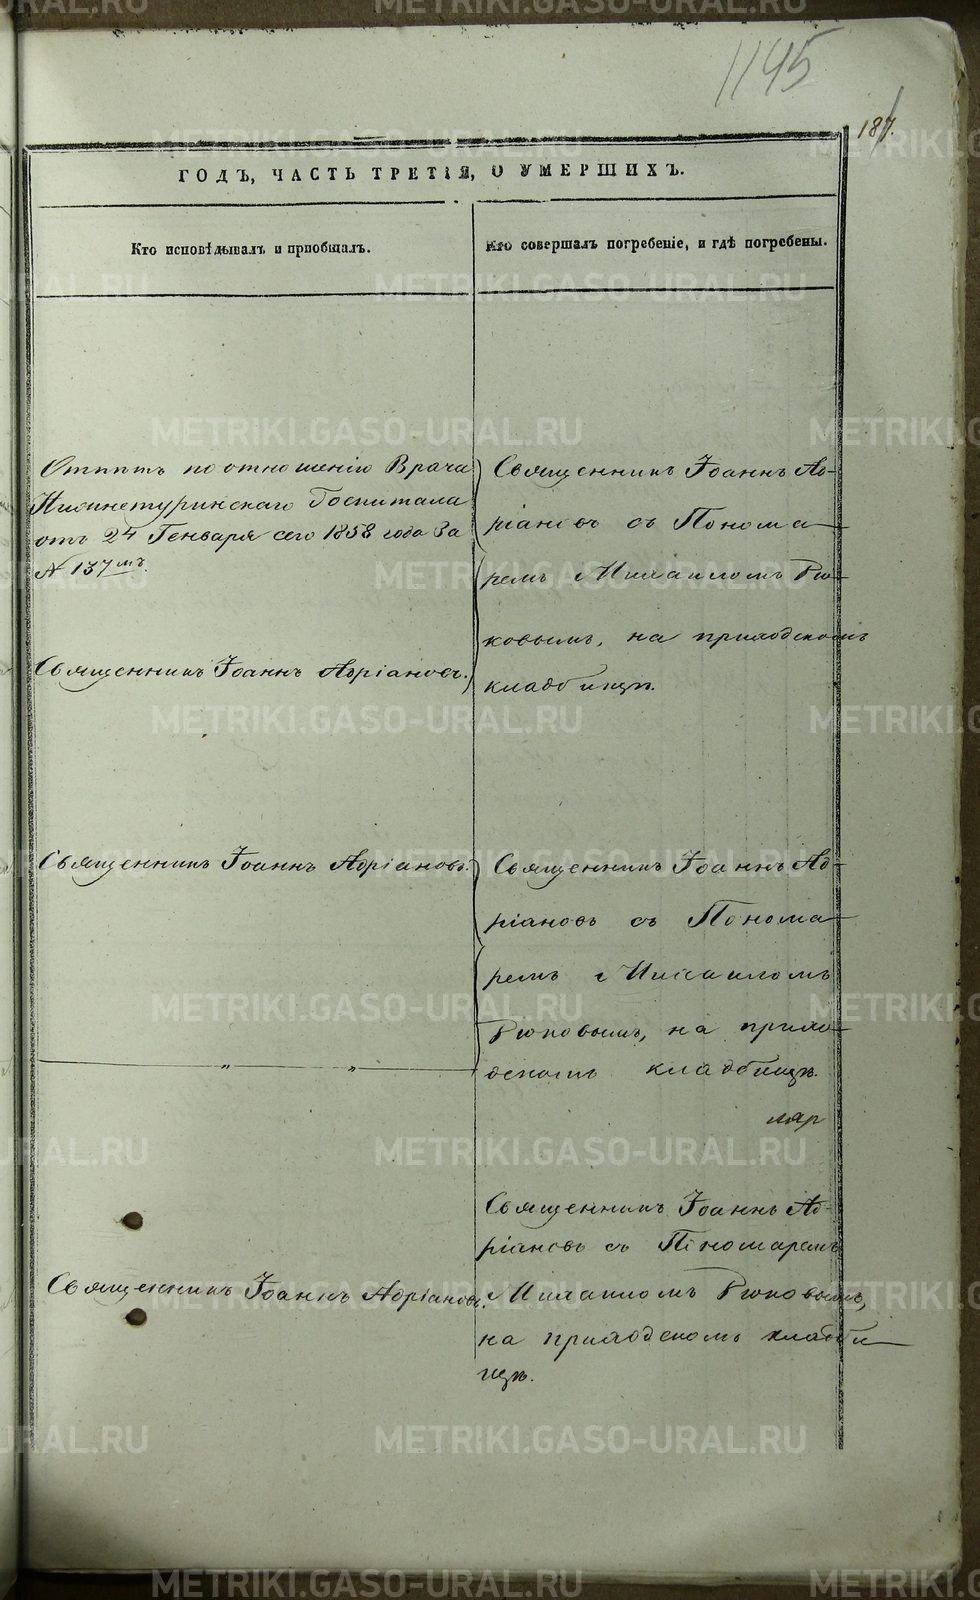 1145
187.
ГОДЪ, ЧАСТЬ ТРЕТІЯ, О УМЕРШИХЪ.
Кто исповѣдывалъ и пріобщалъ.
Кто совершалъ погребеніе, и гдѣ погребены.
Отпѣтъ по отношенію Врача
Нижнетуринскаго Госпиталя
отъ 24 Генваря сего 1858 года за
№ 137мъ.
Священникъ Іоаннъ Адріановъ.
Священникъ Іоаннъ Ад-
ріановъ съ Понома-
ремъ Михаиломъ Рю-
ковымъ, на приходскомъ
кладбищѣ.
Священникъ Іоаннъ Адріановъ.
" "
Священникъ Іоаннъ Ад-
ріановъ съ Понома-
ремъ Михаиломъ
Рюковымъ, на прихо-
дскомъ кладбищѣ.
Священникъ Іоаннъ Адріановъ.
Священникъ Іоаннъ Ад-
ріановъ съ Пономаремъ
Михаиломъ Рюковымъ,
на приходскомъ кладби-
щѣ.
METRIKI.GASO-URAL.RU